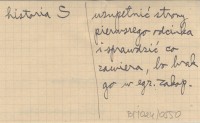 historia S
uzupełnić strony
pierwszego odcinka
i sprawdzić co
zawiera, bo brak
go w egz. zakop.